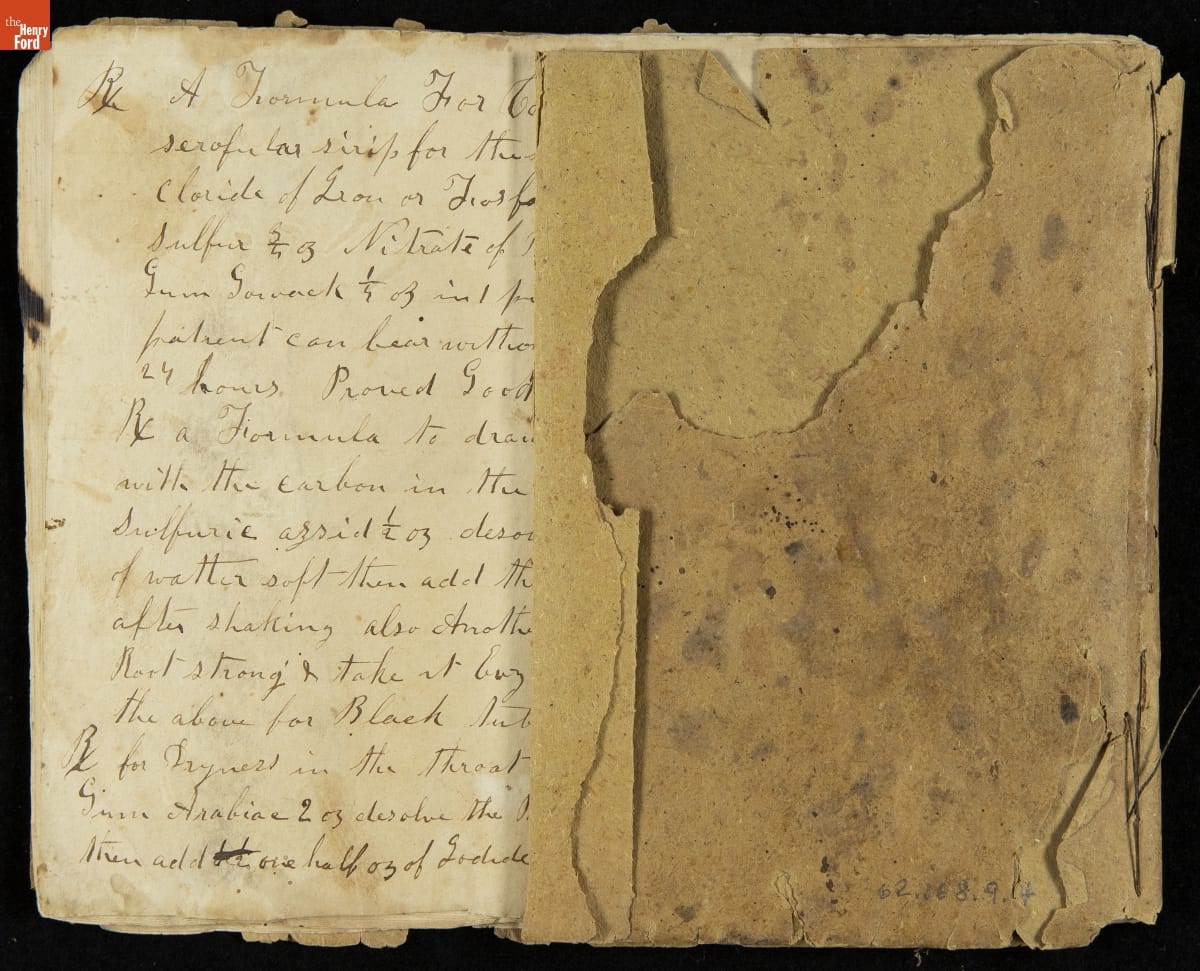 the Henry Ford
Rx A Formula For
serofular sirip for the
cloride of Iron or
sulfur oz Nitrate of
Gum 1/4 oz in 1
patient can bear witho
24 hours. Proved Good
Rx a Formula to draw
with the carbon in the
Sulfuric azsid 1/2 oz desov
of watter soft then add th
after shaking also Anothe
Root strong & take it Evry
the above for Black
Rx for Dryness in the throat
Gum Arabiac 2 oz desolve the
then add one half oz of Iodide
62.168.9.4